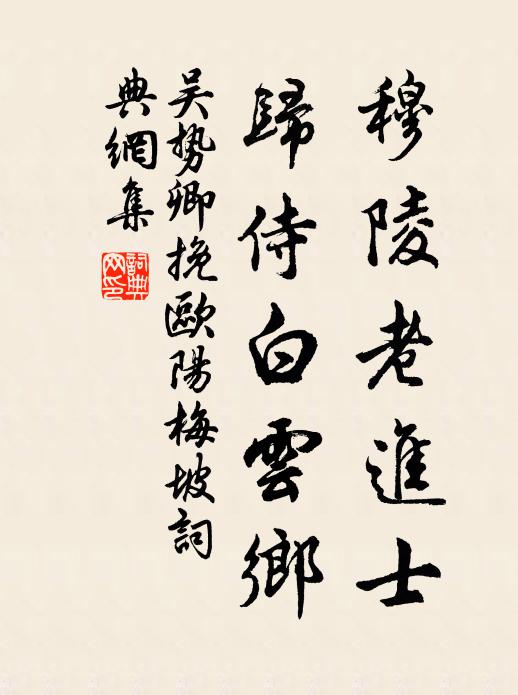 穆陵老進士
歸侍白雲鄉
吴勢卿挽歐陽梅坡詞
典網集
詞典網印